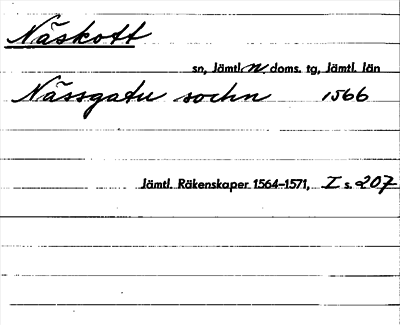 Näskott
sn, Jämtl. n. doms. tg, Jämtl. län
Nässgatu sochn 1566
Jämtl. Räkenskaper 1564–1571, I s. 207